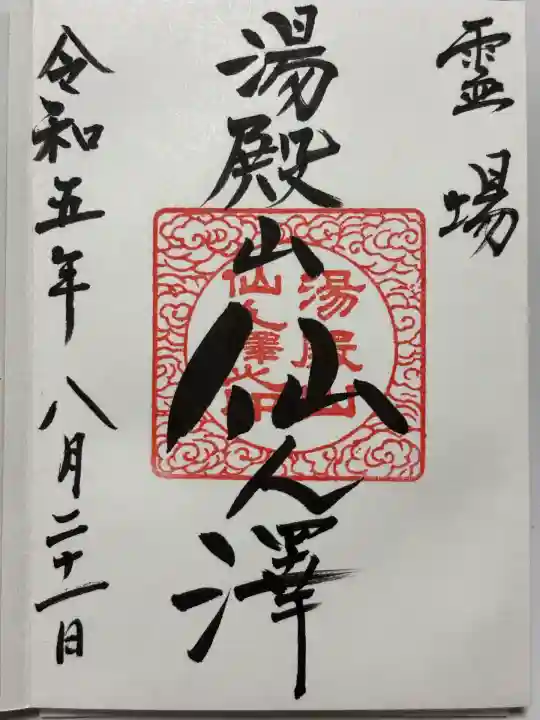 霊場
湯殿山仙人澤
湯殿山
仙人澤之印
令和五年八月二十一日